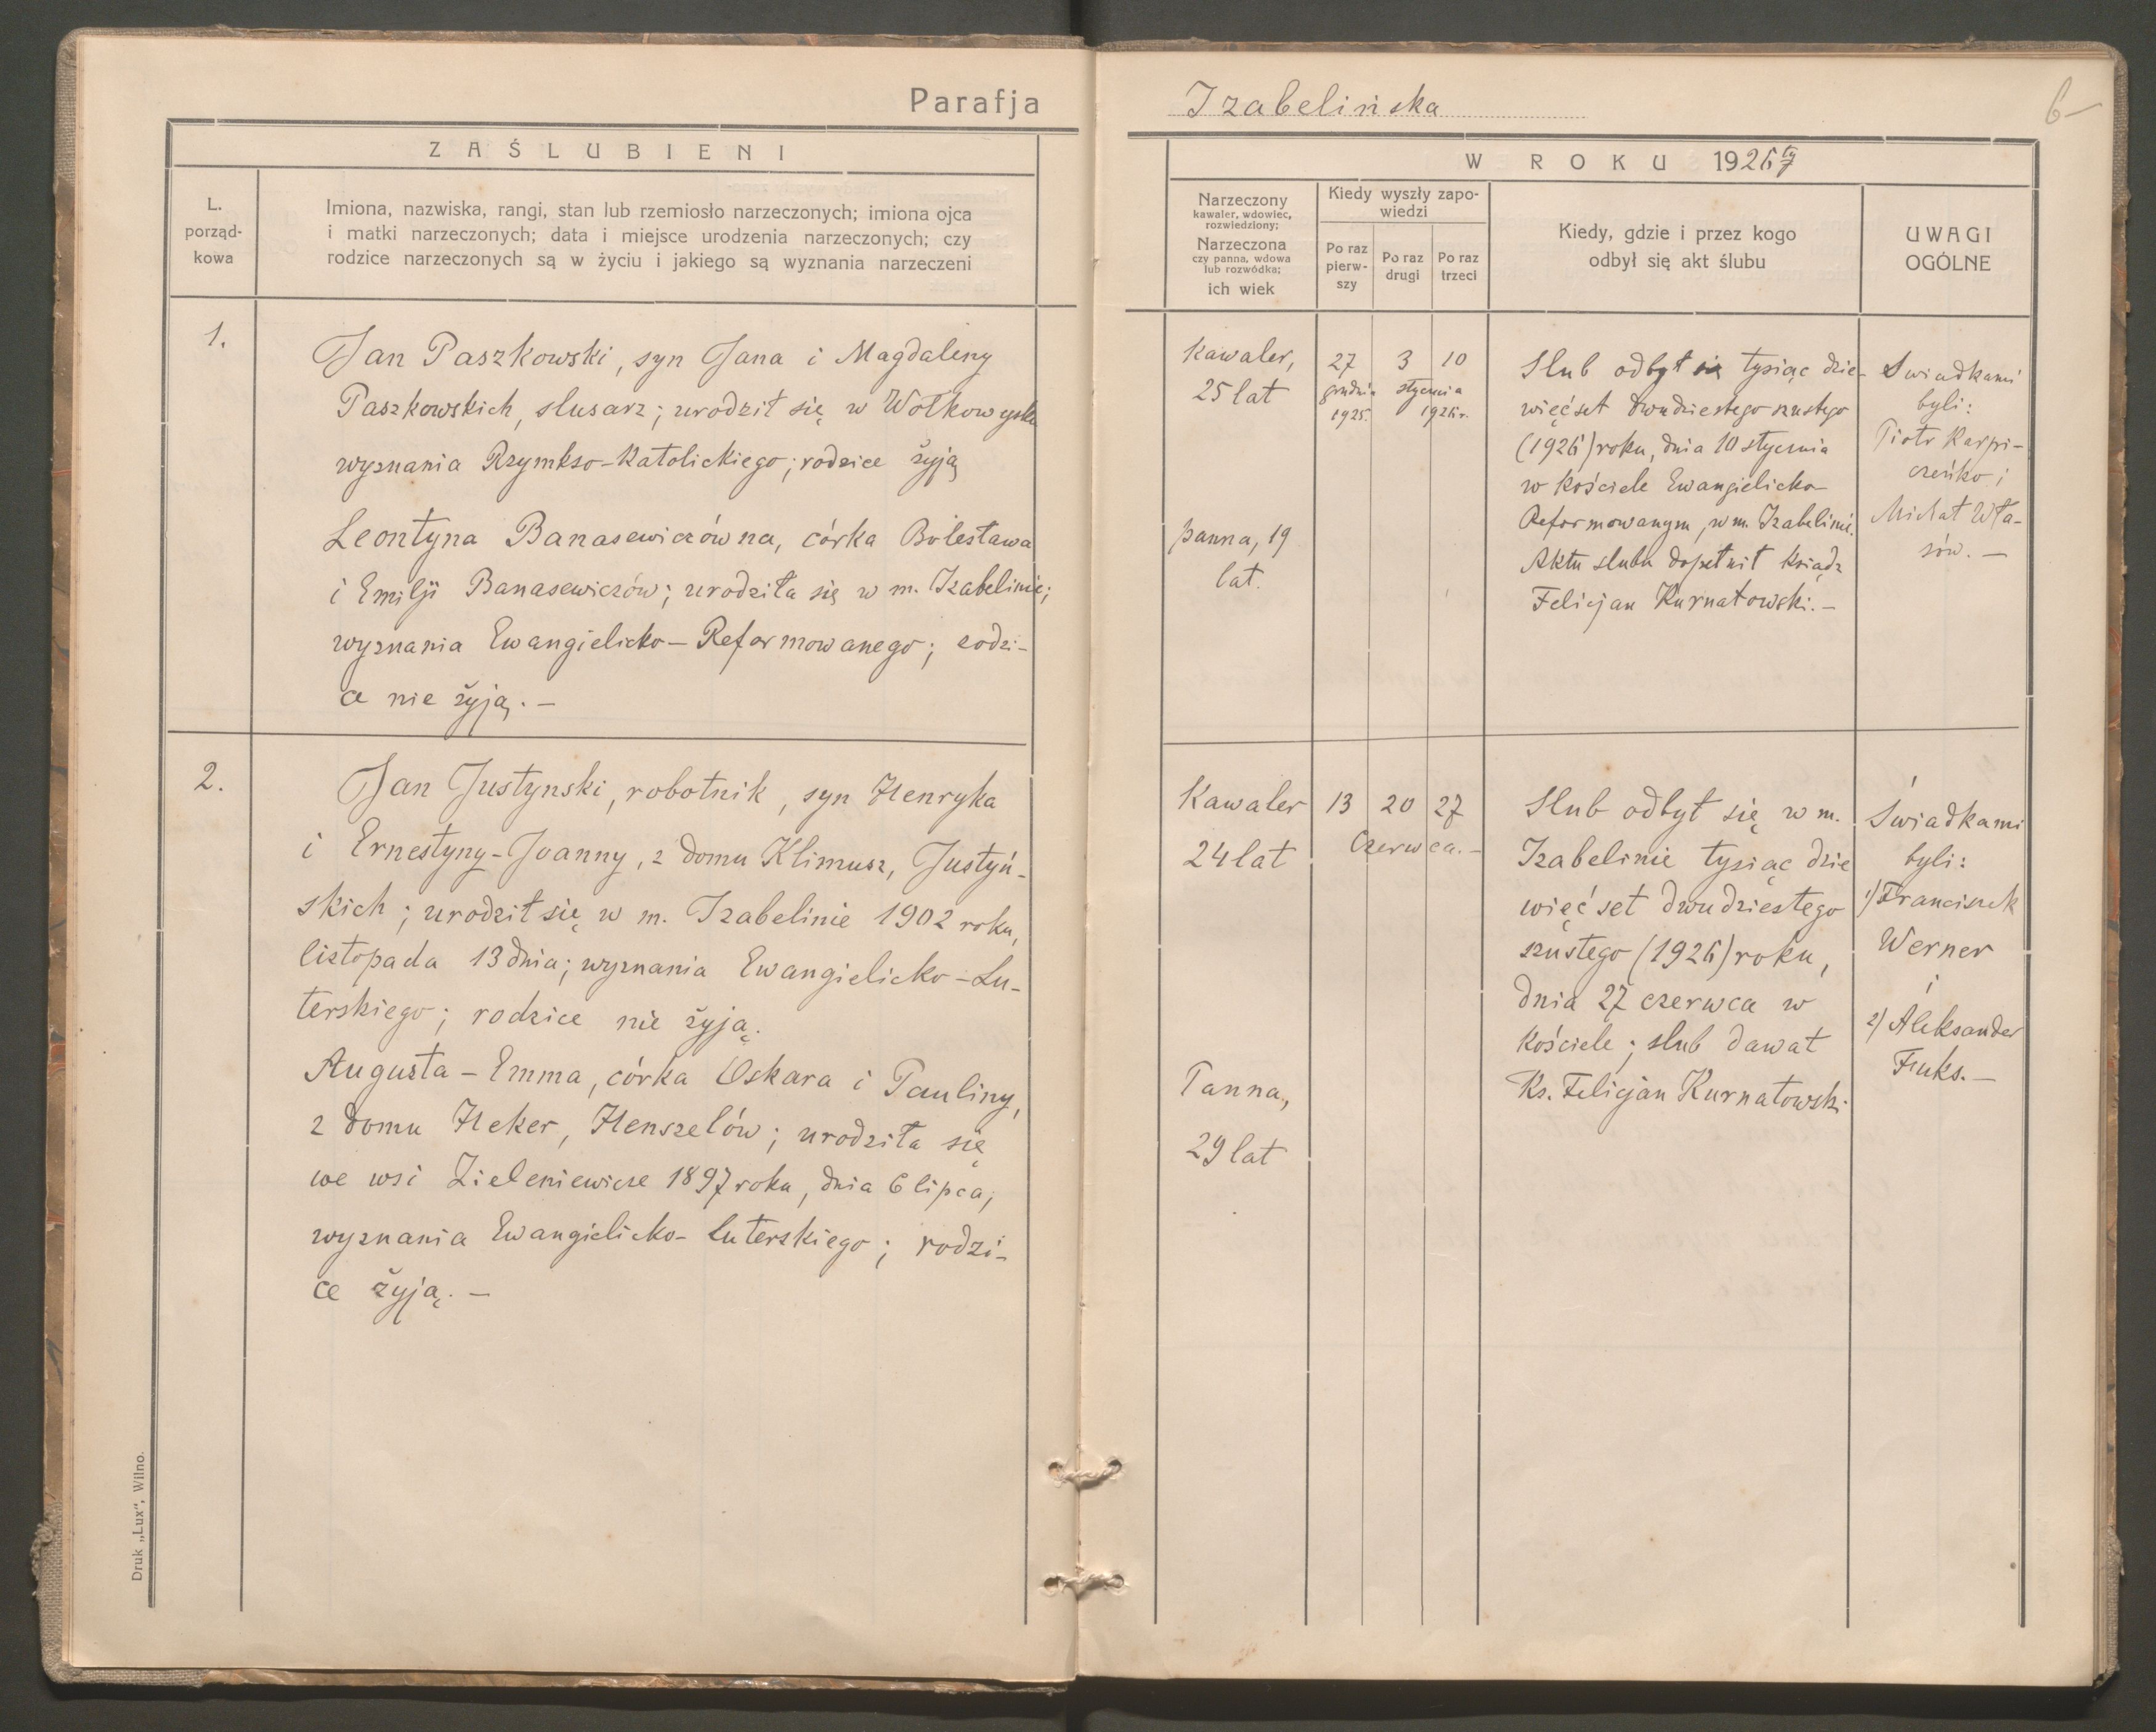 Parafja
ZAŚLUBIENI
L.
porząd-
kowa
Imiona, nazwiska, rangi, stan lub rzemiosło narzeczonych; imiona ojca
i matki narzeczonych; data i miejsce urodzenia narzeczonych; czy
rodzice narzeczonych są w życiu i jakiego są wyznania narzeczeni
1.
Jan Paszkowski, syn Jana i Magdaleny
Paszkowskich, slusarz; urodził się w Wołkowysku
wyznania Rzymkso-Katolickiego; rodzice żyją
Leontyna Banasewiczówna, córka Bolesława
i Emilji Banasewiczów; urodziła się w m. Izabelinie;
wyznania Ewangielicko-Reformowanego; rodzi-
ce nie żyją. —
2.
Jan Justynski, robotnik, syn Henryka
i Ernestyny-Joanny, z domu Klimusz, Justyń-
skich; urodził się w m. Izabelinie 1902 roku,
listopada 13 dnia; wyznania Ewangielicko-Lu-
terskiego; rodzice nie żyją.
Augusta-Emma, córka Oskara i Pauliny,
z domu Heker, Henszelów; urodziła się
we wsi Zieleniewicze 1897 roku, dnia 6 lipca;
wyznania Ewangielicko-luterskiego; rodzi-
ce żyją. —
Druk „Lux", Wilno.
Izabelińska
6—
W ROKU 1926
Narzeczony
kawaler, wdowiec,
rozwiedziony;
Narzeczona
czy panna, wdowa
lub rozwódka;
ich wiek
Kiedy wyszły zapo-
wiedzi
Po raz
pierw-
szy
Po raz
drugi
Po raz
trzeci
Kiedy, gdzie i przez kogo
odbył się akt ślubu
UWAGI
OGÓLNE
Kawaler,
25 lat
panna, 19
lat.
27 3 10
grudnia stycznia
1925. 1926 r.
Slub odbył się tysiąc dzie-
więćset dwudziestego szustego
(1926) roku, dnia 10 stycznia
w Kościele Ewangielicko-
Reformowanym, w m. Izabelinie.
Aktu slubu dopełnił ksiądz
Felicjan Kurnatowski. —
Swiadkami
byli:
Piotr Karpi-
czeńko i
Michał Wła-
sów. —
Kawaler
24 lat
Panna,
29 lat
13 20 27
Czerwca. —
Slub odbył się w m.
Izabelinie tysiąc dzie
więćset dwudziestego
szustego (1926) roku,
dnia 27 czerwca w
Kościele; slub dawał
Ks. Felicjan Kurnatowski
Świadkami
byli:
1) Franciszek
Werner
i
2) Aleksander
Fuks. —